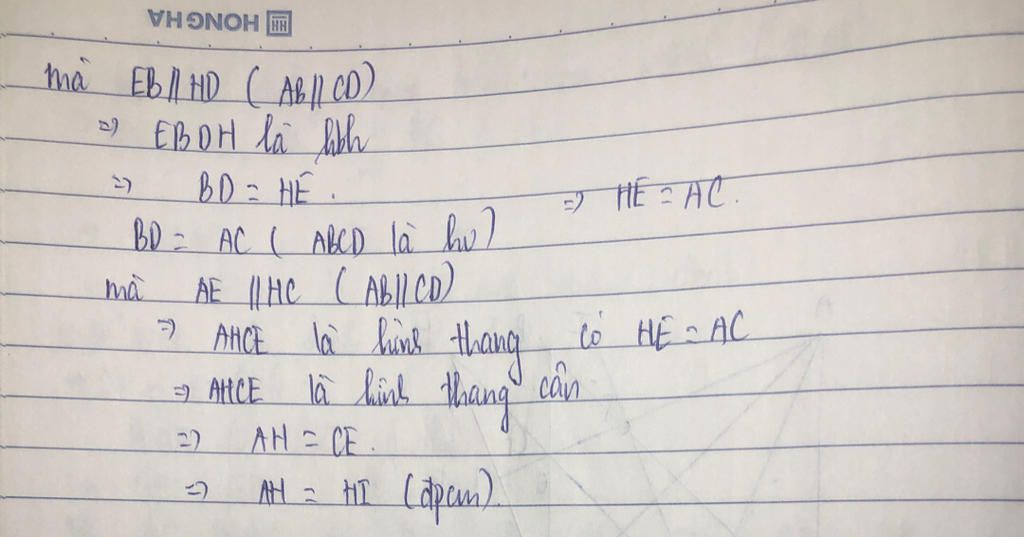 HONG HA
mà EB // HD ( AB // CD)
=> EBDH là hbh
=> BD = HE . => HE = AC.
BD = AC ( ABCD là hv)
mà AE // HC ( AB // CD)
=> AHCE là hình thang có HE = AC
=> AHCE là hình thang cân
=> AH = CE .
=> AH = HI (đpcm).